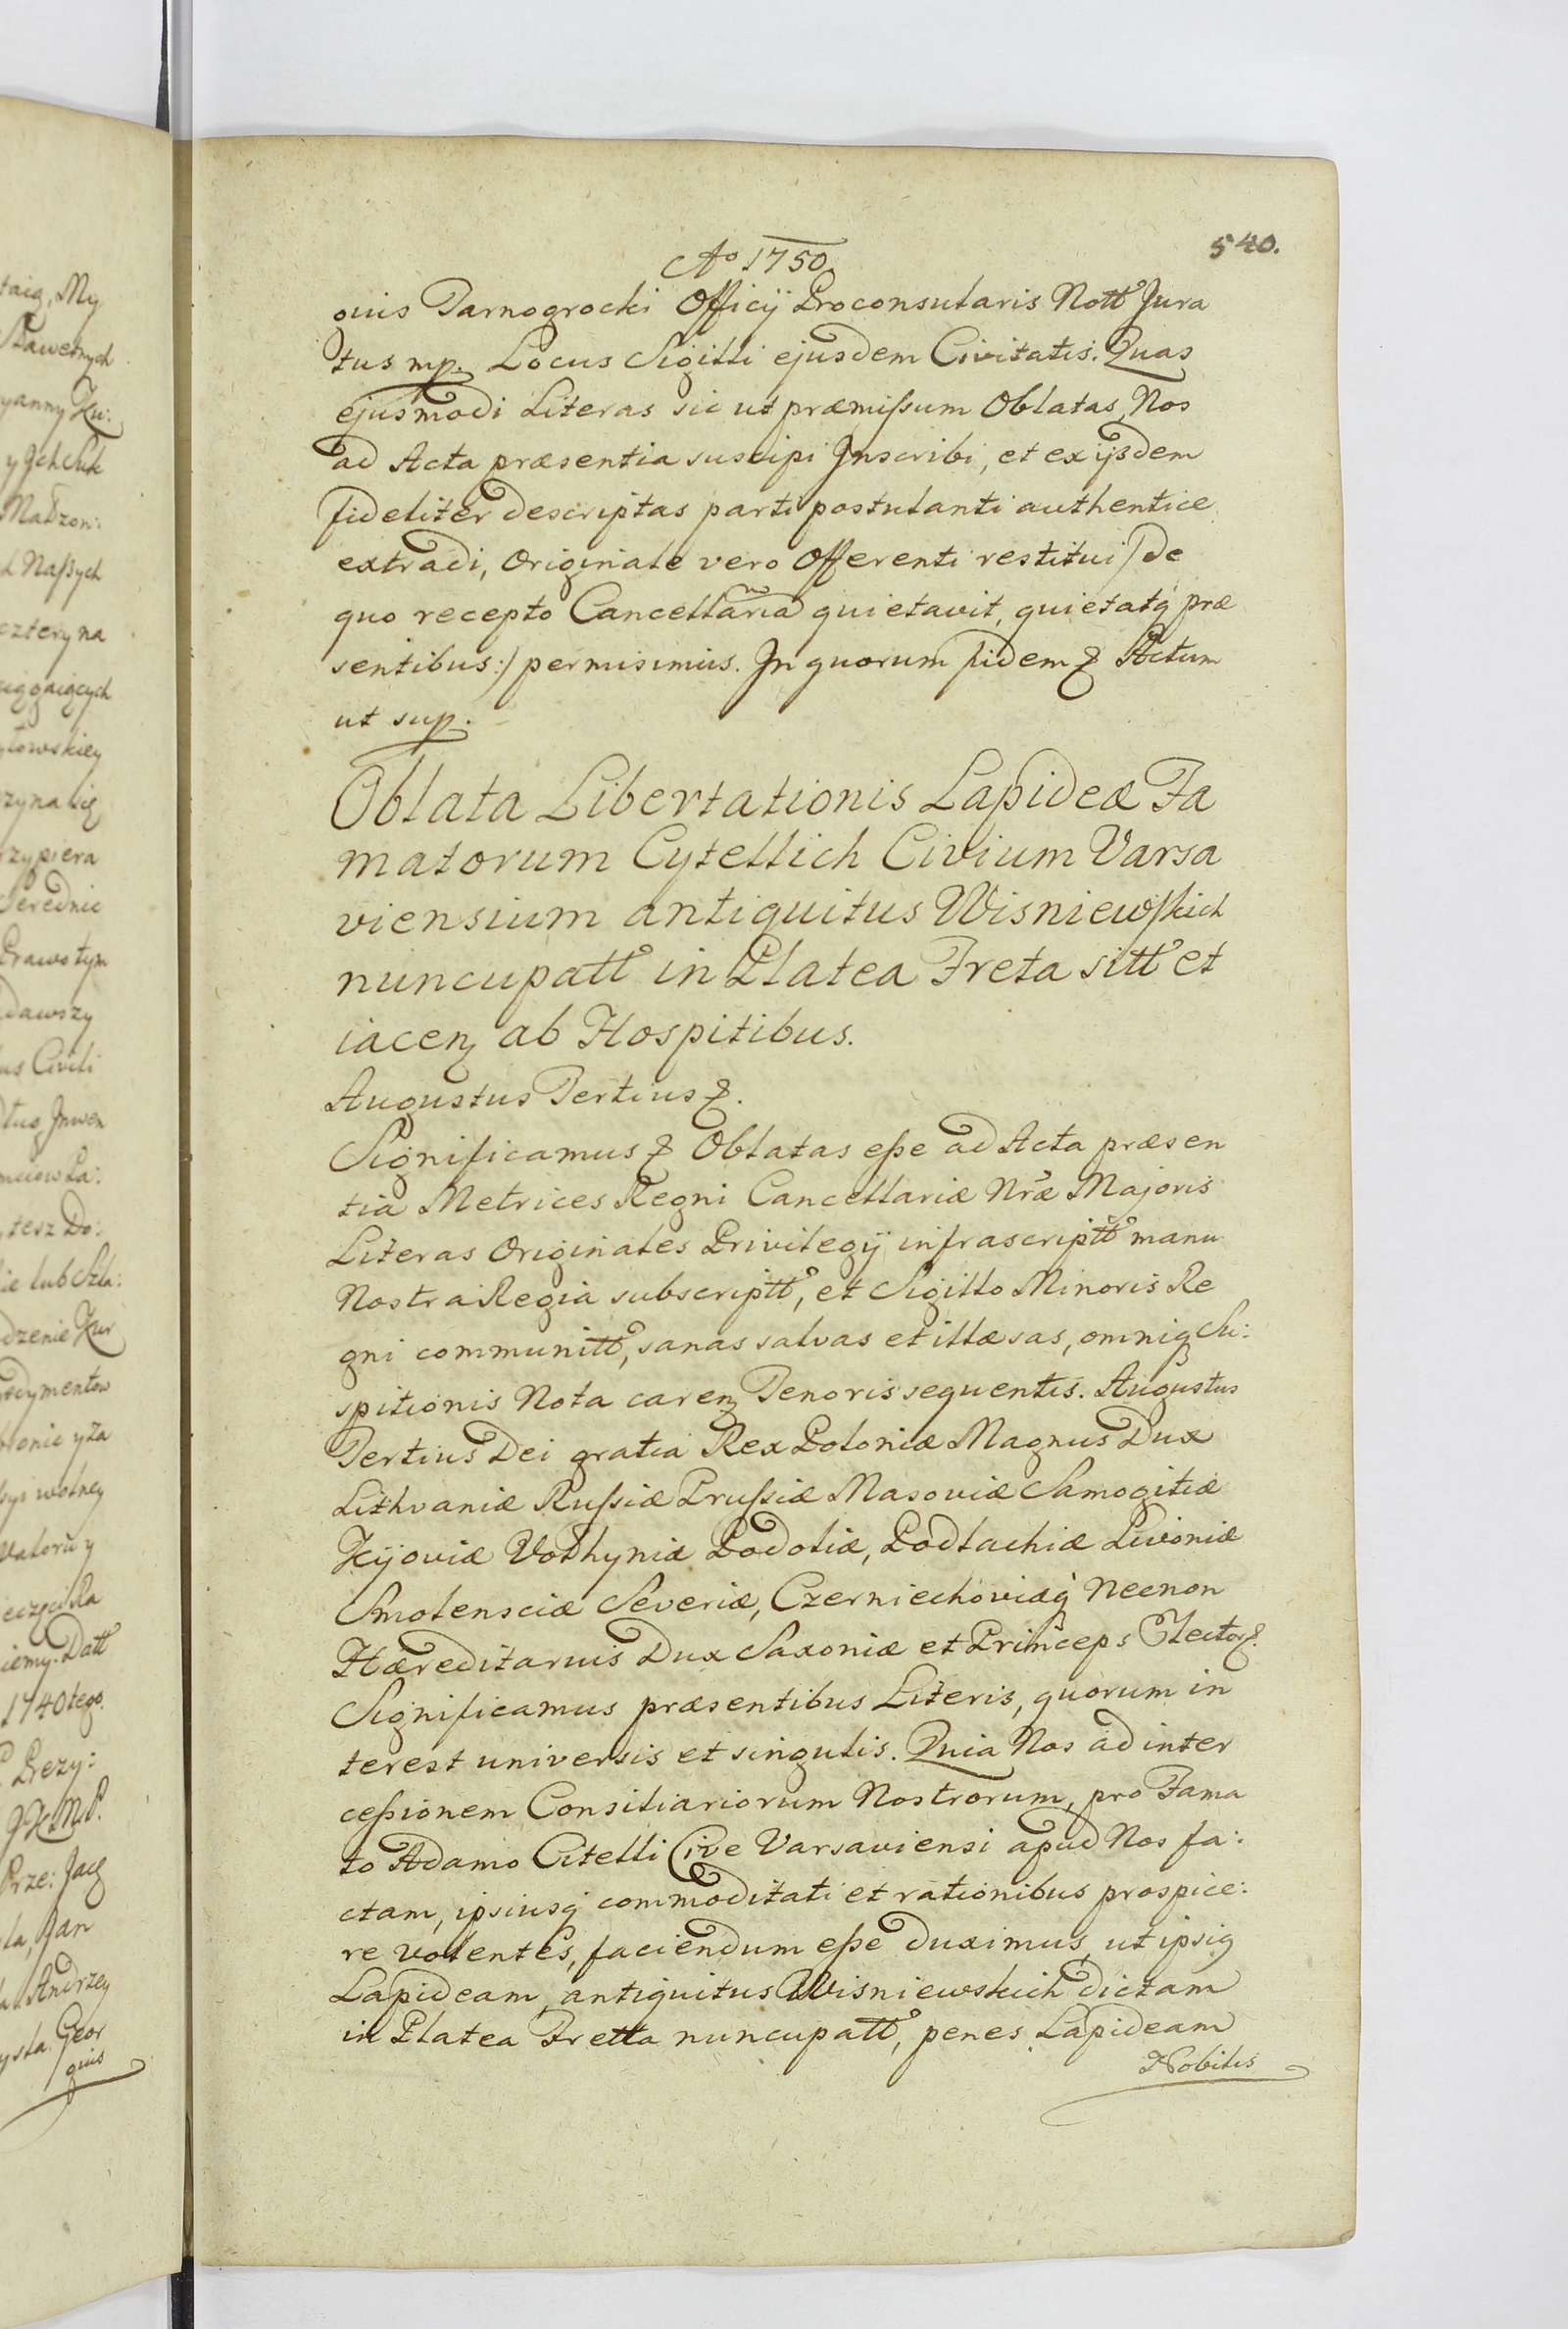 540.
Ao 1750.
gius Tarnogrocki Officij Proconsularis Nottº Jura
tus mp. Locus Sigilli ejusdem Civitatis. Quas
ejusmodi Literas sic ut præmissum Oblatas, Nos
ad Acta præsentia suscipi Inscribi, et ex ijsdem
fideliter descriptas parti postulanti authentice
extradi, Originale vero Offerenti restitui /de
quo recepto Cancellaria quietavit, quietatq præ
sentibus:/ permisimus. In quorum fidem & Actum
ut sup.
Oblata Libertationis Lapideæ Fa
matorum Cytellich Civium Varsa
viensium antiquitus Wisniewskich
nuncupattº in Platea Freta sittº et
iacen ab Hospitibus.
Augustus Tertius &.
Significamus & Oblatas esse ad Acta præsen
tia Metrices Regni Cancellariæ Nræ Majoris
Literas Originales Privilegij infrascripttº manu
Nostra Regia subscripttº, et Sigillo Minoris Re
gni communittº, sanas salvas et illæsas, omniq Su:
spitionis Nota caren Tenoris sequentis. Augustus
Tertius Dei gratia Rex Poloniæ Magnus Dux
Lithvaniæ Russiæ Prussiæ Masoviæ Samogitiæ
Kijoviæ Volhyniæ Podoliæ, Podlachiæ Livoniæ
Smolensciæ Severiæ, Czerniechoviæq Necnon
Hæreditarius Dux Saxoniæ et Princeps Elector &.
Significamus præsentibus Literis, quorum in
terest universis et singulis. Quia Nos ad inter
cessionem Consiliariorum Nostrorum, pro Fama
to Adamo Citelli Cive Varsaviensi apud Nos fa:
ctam, ipsiusq commoditati et rationibus prospice:
re volentes, faciendum esse duximus, ut ipsig
Lapideam, antiquitus Wisniewskich dictam
in Platea Fretta nuncupattº, penes Lapideam
Nobilis